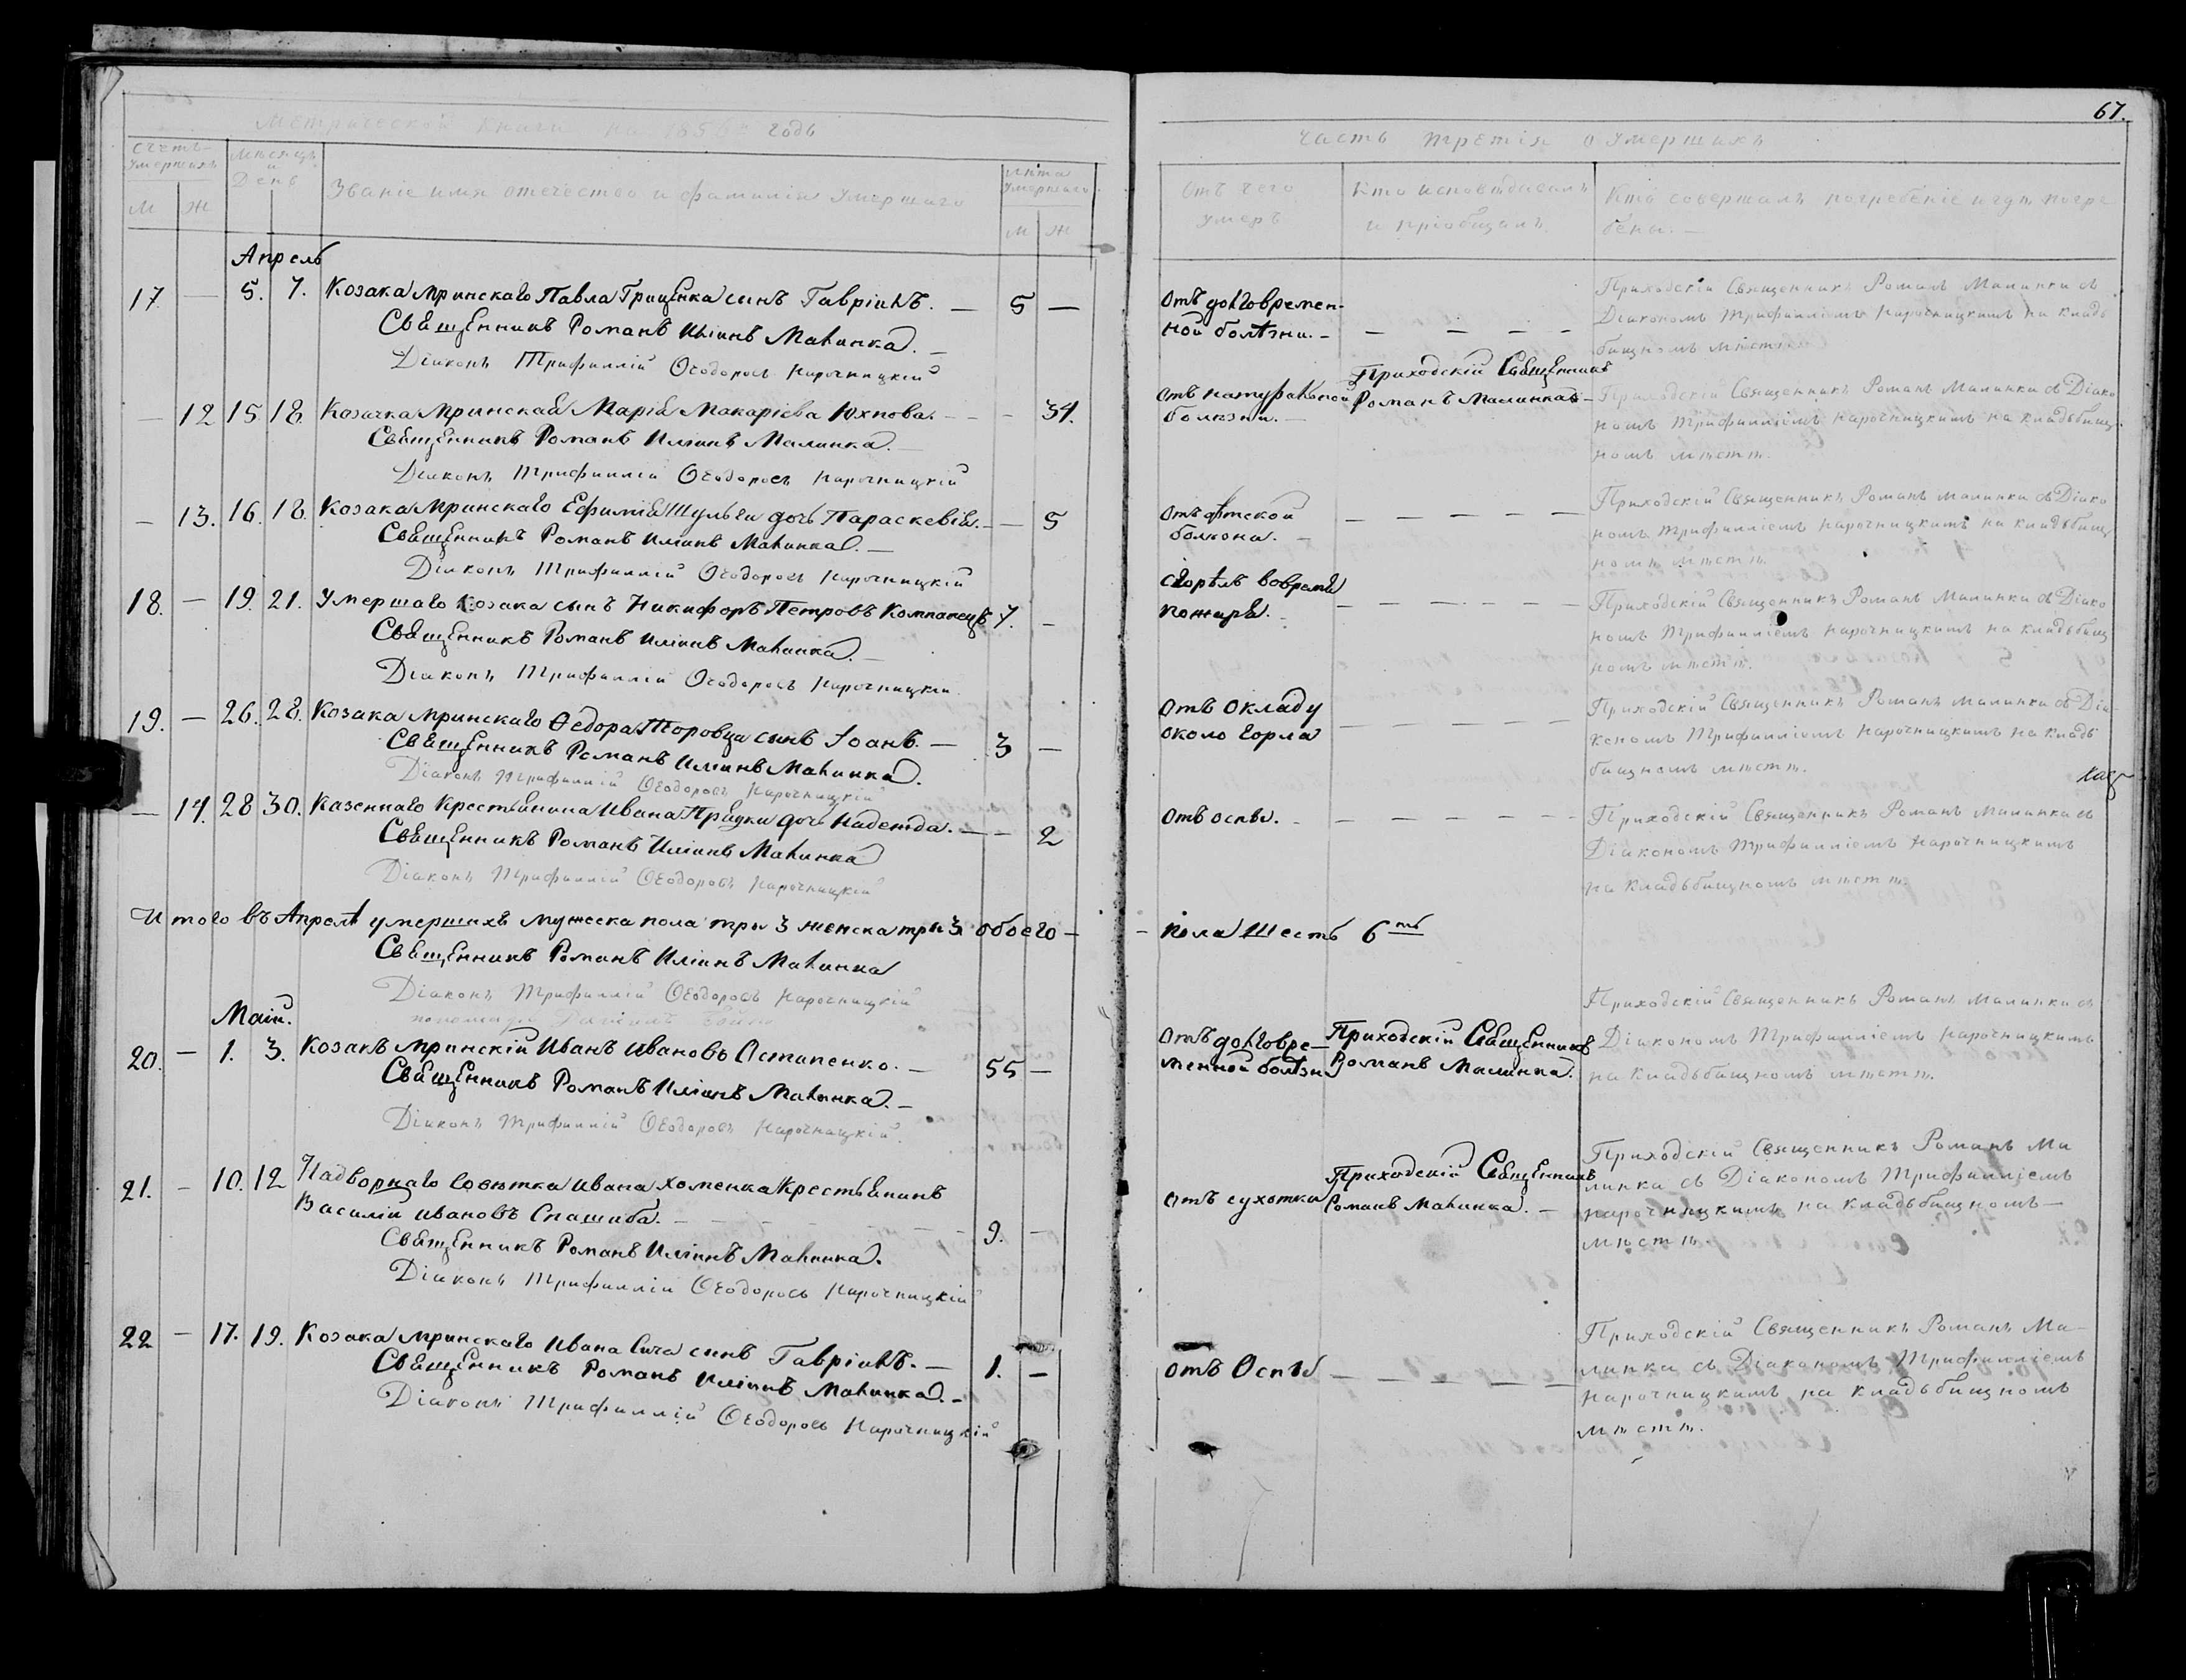 67.
Метрической книги на 1856й годъ
Часть третія о умершихъ
Счетъ умершихъ
Мѣсяцъ и День
Званіе имя отечество и фамилія умершаго
Лѣта умершаго
Отъ чего умеръ
Кто исповѣдывалъ и пріобщалъ
Кто совершалъ погребеніе и гдѣ погребены. —
М Ж
М Ж
Апрель
17 — 5. 7. Козака Мринскаго Павла Гриценка сынъ Гавріилъ. — 5 —
Священникъ Романъ Иліинъ Малинка. —
Діаконъ Трифиллій Ѳеодоровъ Нарочницкій
Отъ долговремен-
ной болѣзни. —
Приходскій Священникъ Романъ Малинка съ
Діакономъ Трифилліемъ Нарочницкимъ на кладь
бищномъ мѣстѣ.
— 12 15 18. Козачка Мринская Марія Макаріева Юхнова. — — 34.
Священникъ Романъ Иліинъ Малинка. —
Діаконъ Трифиллій Ѳеодоровъ Нарочницкій
Отъ натуральной
болѣзни. —
Приходскій Священникъ
Романъ Малинка —
Приходскій Священникъ Романъ Малинка съ Діако
номъ Трифилліемъ Нарочницкимъ на кладьбищ
номъ мѣстѣ.
— 13. 16. 18. Козака Мринскаго Ефимія Шульги дочь Параскевія. — — 5
Священникъ Романъ Иліинъ Малинка. —
Діаконъ Трифиллій Ѳеодоровъ Нарочницкій
Приходскій Священникъ Романъ Малинка съ Діако
номъ Трифилліемъ Нарочницкимъ на кладьбищ
номъ мѣстѣ.
18. — 19. 21. Умершаго Козака сынъ Никифоръ Петровъ Компанецъ 7. —
Священникъ Романъ Иліинъ Малинка. —
Діаконъ Трифиллій Ѳеодоровъ Нарочницкій
сгорѣлъ вовремя
пожара. —
Приходскій Священникъ Романъ Малинка съ Діако
номъ Трифилліемъ Нарочницкимъ на кладьбищ
номъ мѣстѣ.
19. — 26. 28. Козака Мринскаго Ѳедора сынъ Іоанъ. — 3 —
Священникъ Романъ Иліинъ Малинка.
Діаконъ Трифиллій Ѳеодоровъ Нарочницкій
Отъ Окладу
около горла
Приходскій Священникъ Романъ Малинка съ Діа-
кономъ Трифилліемъ Нарочницкимъ на кладь
бищномъ мѣстѣ.
— 14. 28 30. Казеннаго Крестьянина Ивана Прядки дочь Надежда. — — 2
Священникъ Романъ Иліинъ Малинка
Діаконъ Трифиллій Ѳеодоровъ Нарочницкій
Отъ оспы. —
Приходскій Священникъ Романъ Малинка съ
Діакономъ Трифилліемъ Нарочницкимъ
на кладьбищномъ мѣстѣ.
Итого въ Апрелѣ умершихъ мужеска пола три 3 женска три 3 обоего —
— пола шесть 6ть
Священникъ Романъ Иліинъ Малинка
Діаконъ Трифиллій Ѳеодоровъ Нарочницкій
Маій.
20. — 1. 3. Козакъ Мринскій Иванъ Ивановъ Остапенко. — 55 —
Священникъ Романъ Иліинъ Малинка. —
Діаконъ Трифиллій Ѳеодоровъ Нарочницкій.
Отъ долговре-
менной болѣзн
Приходскій Священникъ
Романъ Малинка.
Приходскій Священникъ Романъ Малинка съ
Діакономъ Трифилліемъ Нарочницкимъ
на кладьбищномъ мѣстѣ.
21. — 10. 12 Надворнаго Совѣтка Ивана Хоменка Крестьянинъ
Василій Ивановъ Спашиба. — 9. —
Священникъ Романъ Иліинъ Малинка.
Діаконъ Трифиллій Ѳеодоровъ Нарочницкій
Отъ сухотки
Приходскій Священникъ
Романъ Малинка. —
Приходскій Священникъ Романъ Ма
линка съ Діакономъ Трифилліемъ
Нарочницкимъ на кладьбищномъ —
мѣстѣ.
22 — 17. 19. Козака Мринскаго Ивана Сича сынъ Гавріилъ. — 1. —
Священникъ Романъ Иліинъ Малинка. —
Діаконъ Трифиллій Ѳеодоровъ Нарочницкій
Отъ Оспы
Приходскій Священникъ Романъ Ма-
линка съ Діакономъ Трифилліемъ
Нарочницкимъ на кладьбищномъ
мѣстѣ.